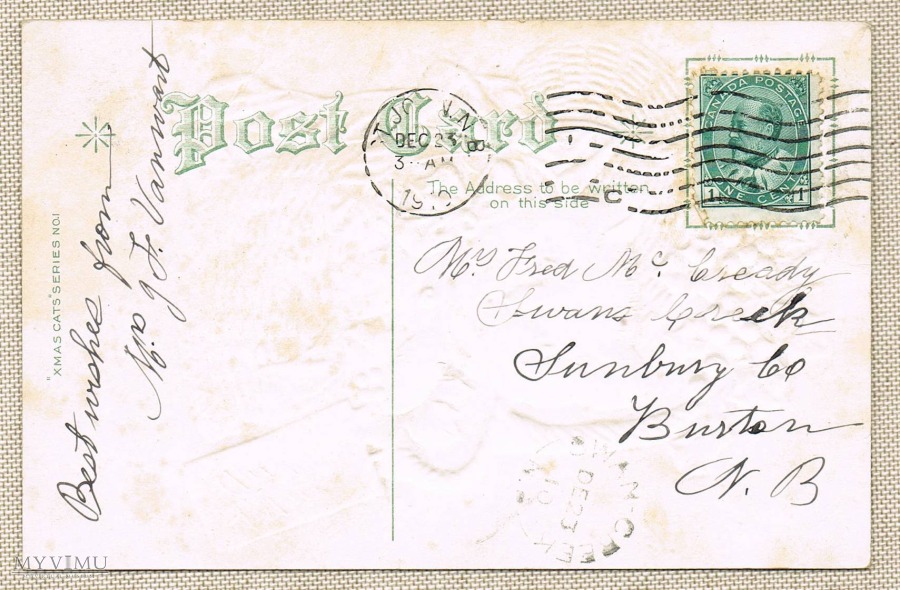 Post Card
CANADA POSTAGE
ONE CENT
1 1
DEC 23
3 AM
The Address to be written
on this side
C
Mrs Fred Mc Cready
Swans Creek
Sunbury Co
Burton
N. B
Best wishes from
Mrs J. Vanwart
"XMAS CATS" SERIES NO.1
CREEK
DE 23
10
MYVIMU